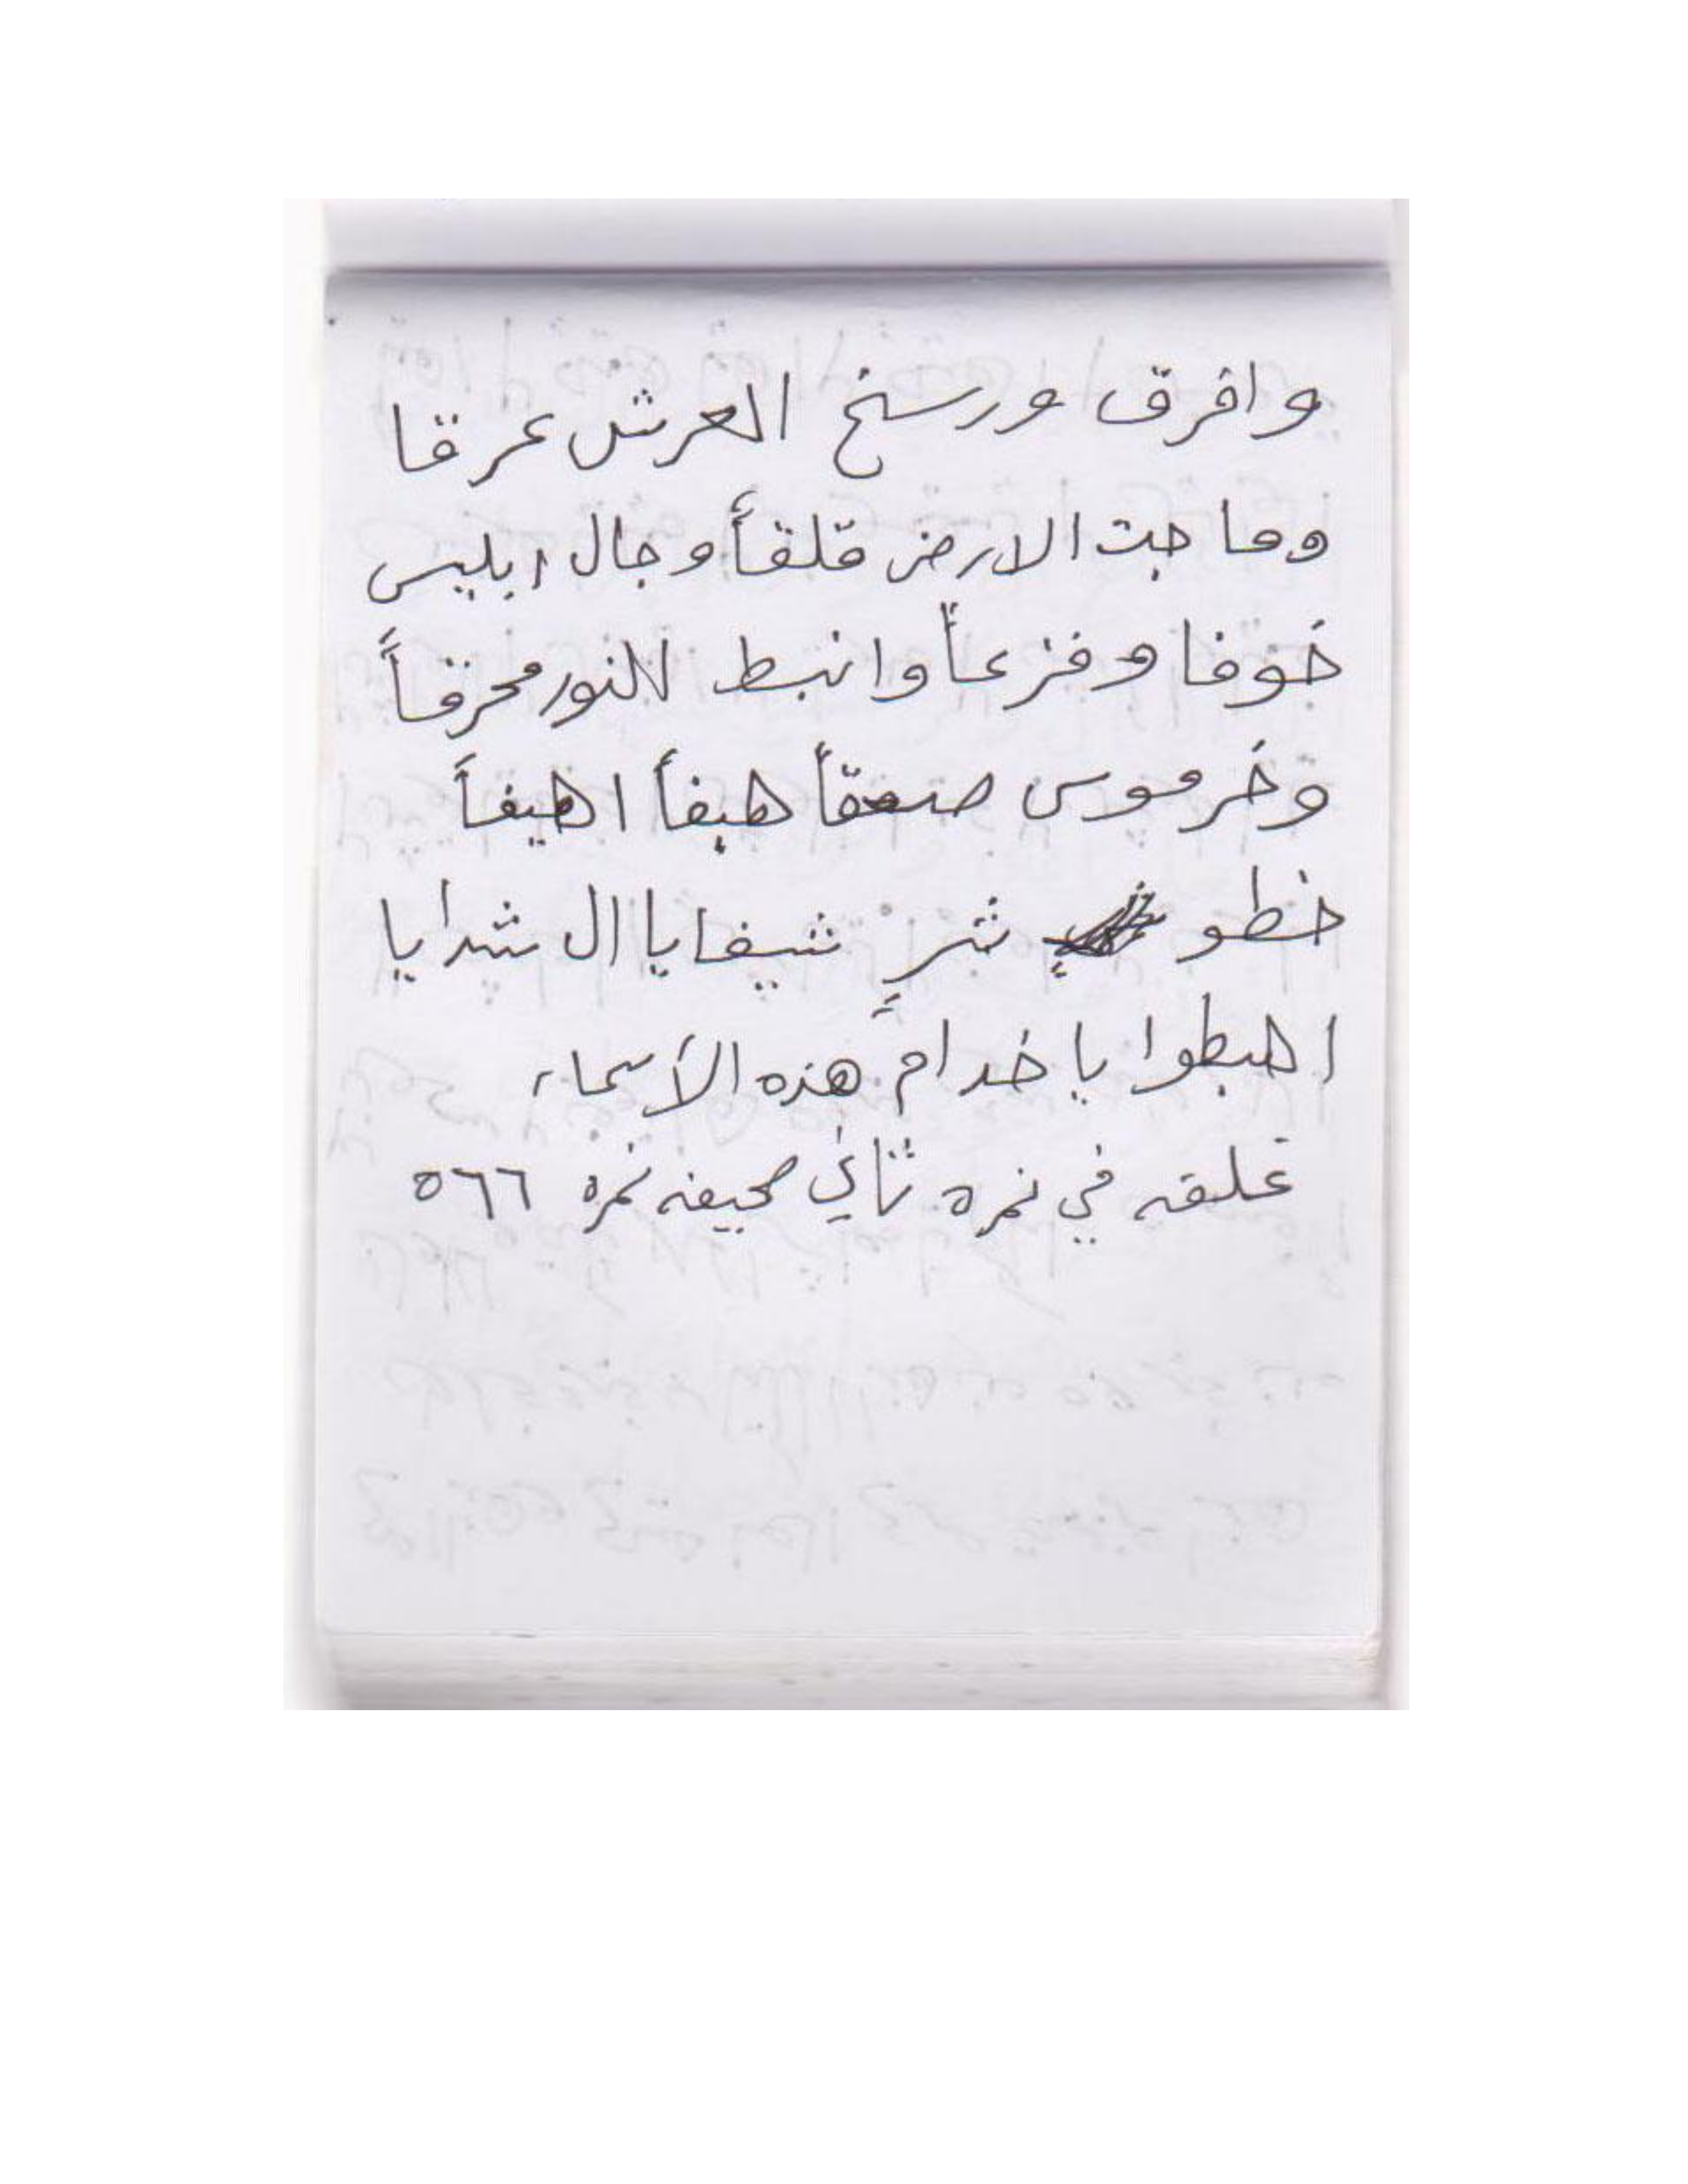 وافرق ورسخ العرش عرقا
وماجت الارض قلقاً وجال ابليس
خوفا وفزعاً وانبط للنور محرقاً
وخر موسى صعقاً هيفاً اهيفاً
خطو شرٍ شيفايا ال شدايا
اهبطوا يا خدام هذه الأسماء
غلقه في نمره ثاني صحيفه نمره ٥٦٦